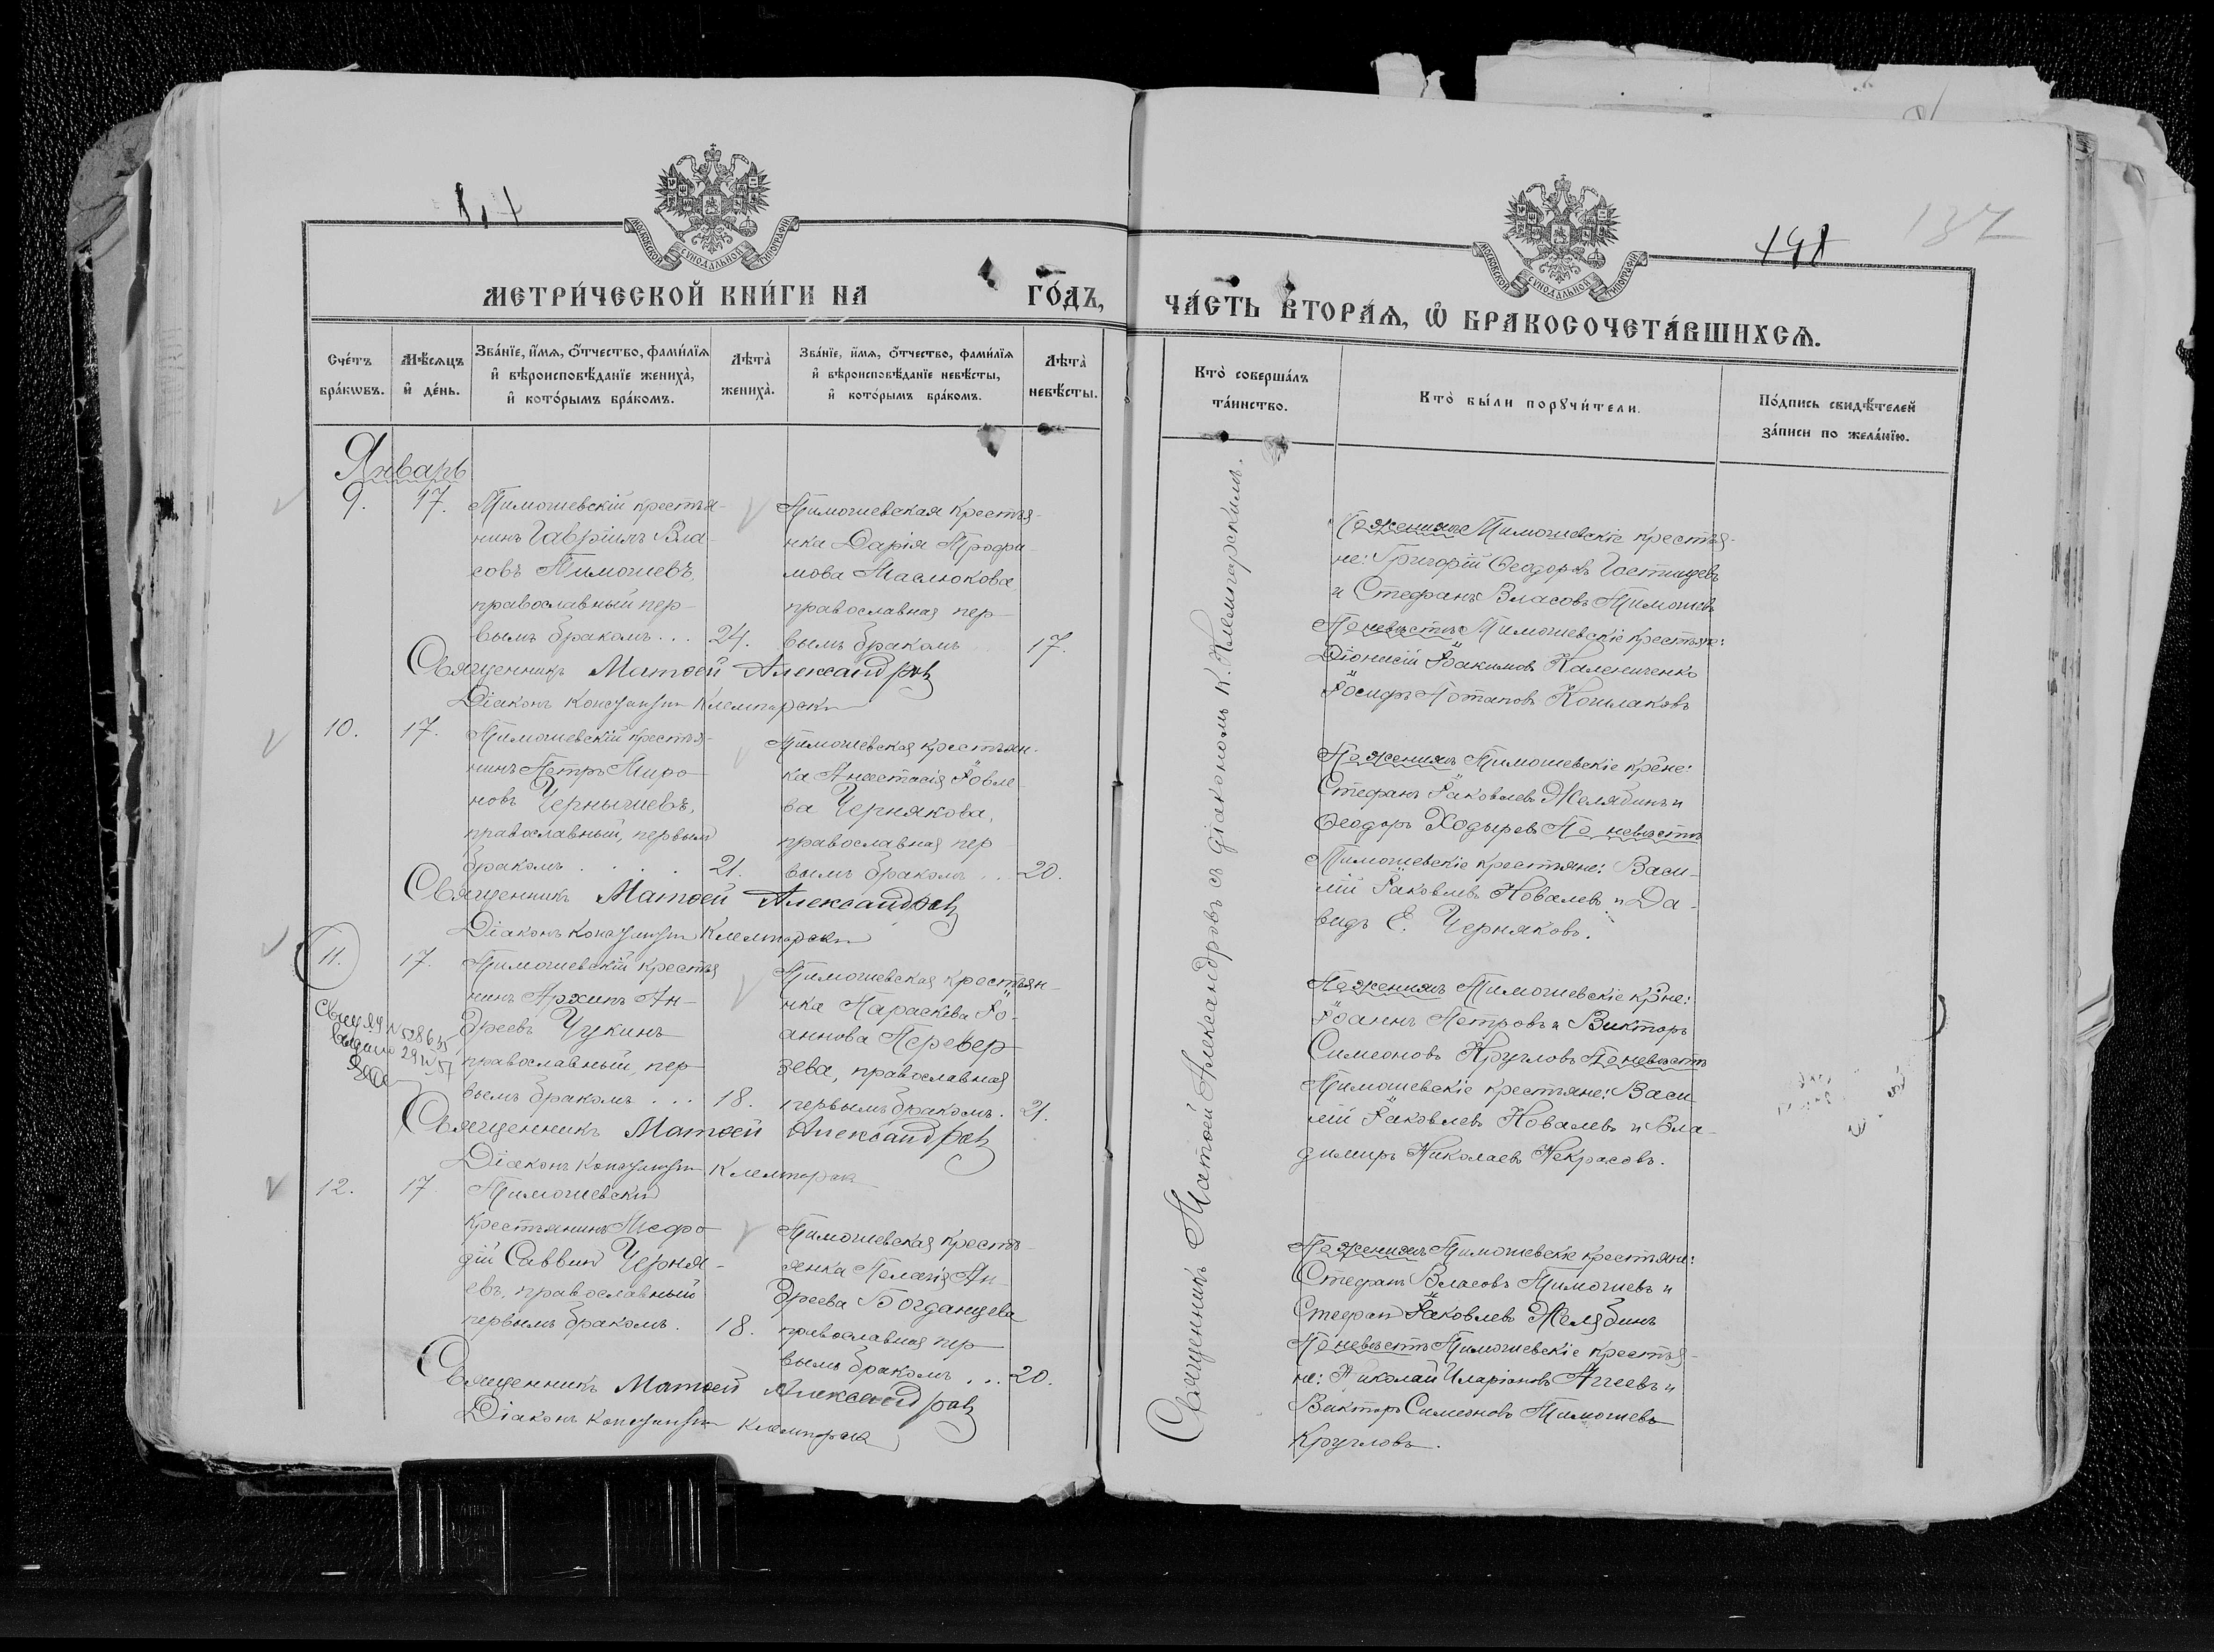 137
МОСКОВСКОЙ СѴНОДАЛЬНОЙ ТИПОГРАФІИ
МОСКОВСКОЙ СѴНОДАЛЬНОЙ ТИПОГРАФІИ
МЕТРИ́ЧЕСКОЙ КНИ́ГИ НА ГО́ДЪ,
Сче́тъ бра́кωвъ.
Мѣ́сѧцъ и҆ де́нь.
Зва́нїе, и҆́мѧ, ѻ҆́тчество, фами́лїѧ
и҆ вѣроисповѣ́данїе жениха̀,
и҆ кото́рымъ бра́комъ.
Лѣта̀ жениха̀.
Зва́нїе, и҆́мѧ, ѻ҆́тчество, фами́лїѧ
и҆ вѣроисповѣ́данїе невѣ́сты,
и҆ кото́рымъ бра́комъ.
Лѣта̀ невѣ́сты.
Январь
9. 17.
Тимошевскій крестья-
нинъ Гавріилъ Вла-
совъ Тимошевъ,
православный пер-
вымъ бракомъ... 24.
Тимошевская крестья-
нка Дарія Трофи-
мова Маслюкова
православная пер-
вымъ бракомъ 17.
Священникъ Матѳей Александровъ
Діаконъ Клемпарскій
10. 17.
Тимошевскій крестья-
нинъ Петръ Миро-
новъ Чернышевъ,
православный, первым
бракомъ . . . . 21.
Тимошевская крестьян-
ка Анастасія Іовле-
ва Чернякова,
православная пер-
вымъ бракомъ ... 20.
Священникъ Матѳей Александровъ
Діаконъ Клемпарскій
11. 17.
Тимошевскій крестья
нинъ Архипъ Ан-
дреевъ Чукинъ
православный, пер-
вымъ бракомъ ... 18.
Тимошевская крестьян-
нка Параскева Іо-
аннова Перевер-
зева, православная
первымъ бракомъ. 21.
Священникъ Матѳей Александровъ
Діаконъ Клемпарскій
12. 17
Тимошевскій
крестьянинъ Мефо-
дій Саввин Черня-
евъ, православный
первымъ бракомъ. 18.
Тимошевская кресть-
янка Пелагія Ан-
дреева Богданцева
православная пер-
вымъ бракомъ ... 20.
Священникъ Матѳей Александровъ
Діаконъ Клемпарскій
ЧА́СТЬ ВТОРА́Ѧ, Ѽ БРАКОСОЧЕТА́ВШИХСѦ.
Кто̀ соверша́лъ та́инство.
Кто̀ бы́ли порꙋчи́тели.
По́дпись свидѣ́телей за́писи по жела́нїю.
Священникъ Матѳей Александровъ съ діакономъ К. Клемпарскимъ.
По женихѣ Тимошевскіе крестья-
не: Григорій Ѳеодоровъ Гостищевъ
и Стефанъ Власовъ Тимошевъ
По невѣстѣ Тимошевскіе крестьяне:
Діонисій Іоакимовъ Калениченко
Іосифъ Потаповъ Кошлаковъ
По женихѣ Тимошевскіе кр̃не:
Стефанъ Іаковлевъ Желябинъ и
Ѳеодоръ Ходыревъ По невѣстѣ
Тимошевскіе крестьяне: Васи-
лій Іаковлевъ Ковалевъ и Да-
видъ Е. Черняковъ.
По женихѣ Тимошевскіе кр̃не:
Іоаннъ Петровъ и Викторъ
Симеоновъ Кругловъ По невѣстѣ
Тимошевскіе крестьяне: Васи-
лій Іаковлевъ Ковалевъ и Вла-
димиръ Николаевъ Некрасовъ.
По женихѣ Тимошевскіе крестьяне:
Стефанъ Власовъ Тимошевъ и
Стефан Іаковлевъ Желябинъ
По невѣстѣ Тимошевскіе крестья-
не: Николай Иларіоновъ Агеевъ и
Викторъ Симеоновъ Тимошевъ
Кругловъ.